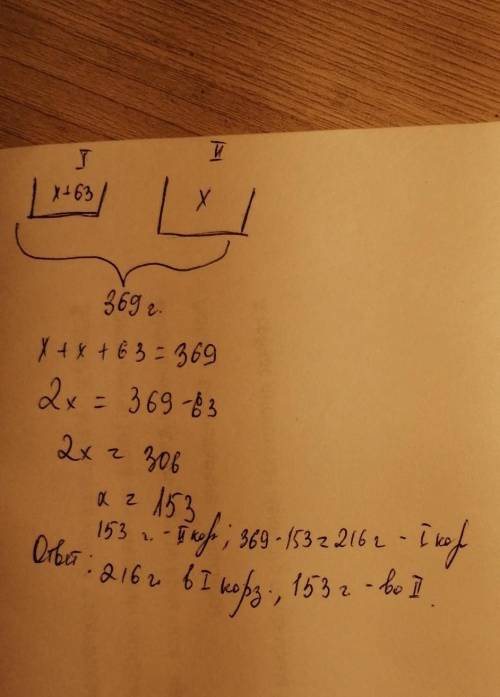 I II
x+63 x
369 г.
x + x + 63 = 369
2x = 369 - 63
2x = 306
x = 153
153 г. - II кор; 369 - 153 = 216 г - I кор
Ответ: 216 г. в I корз., 153 г - во II.